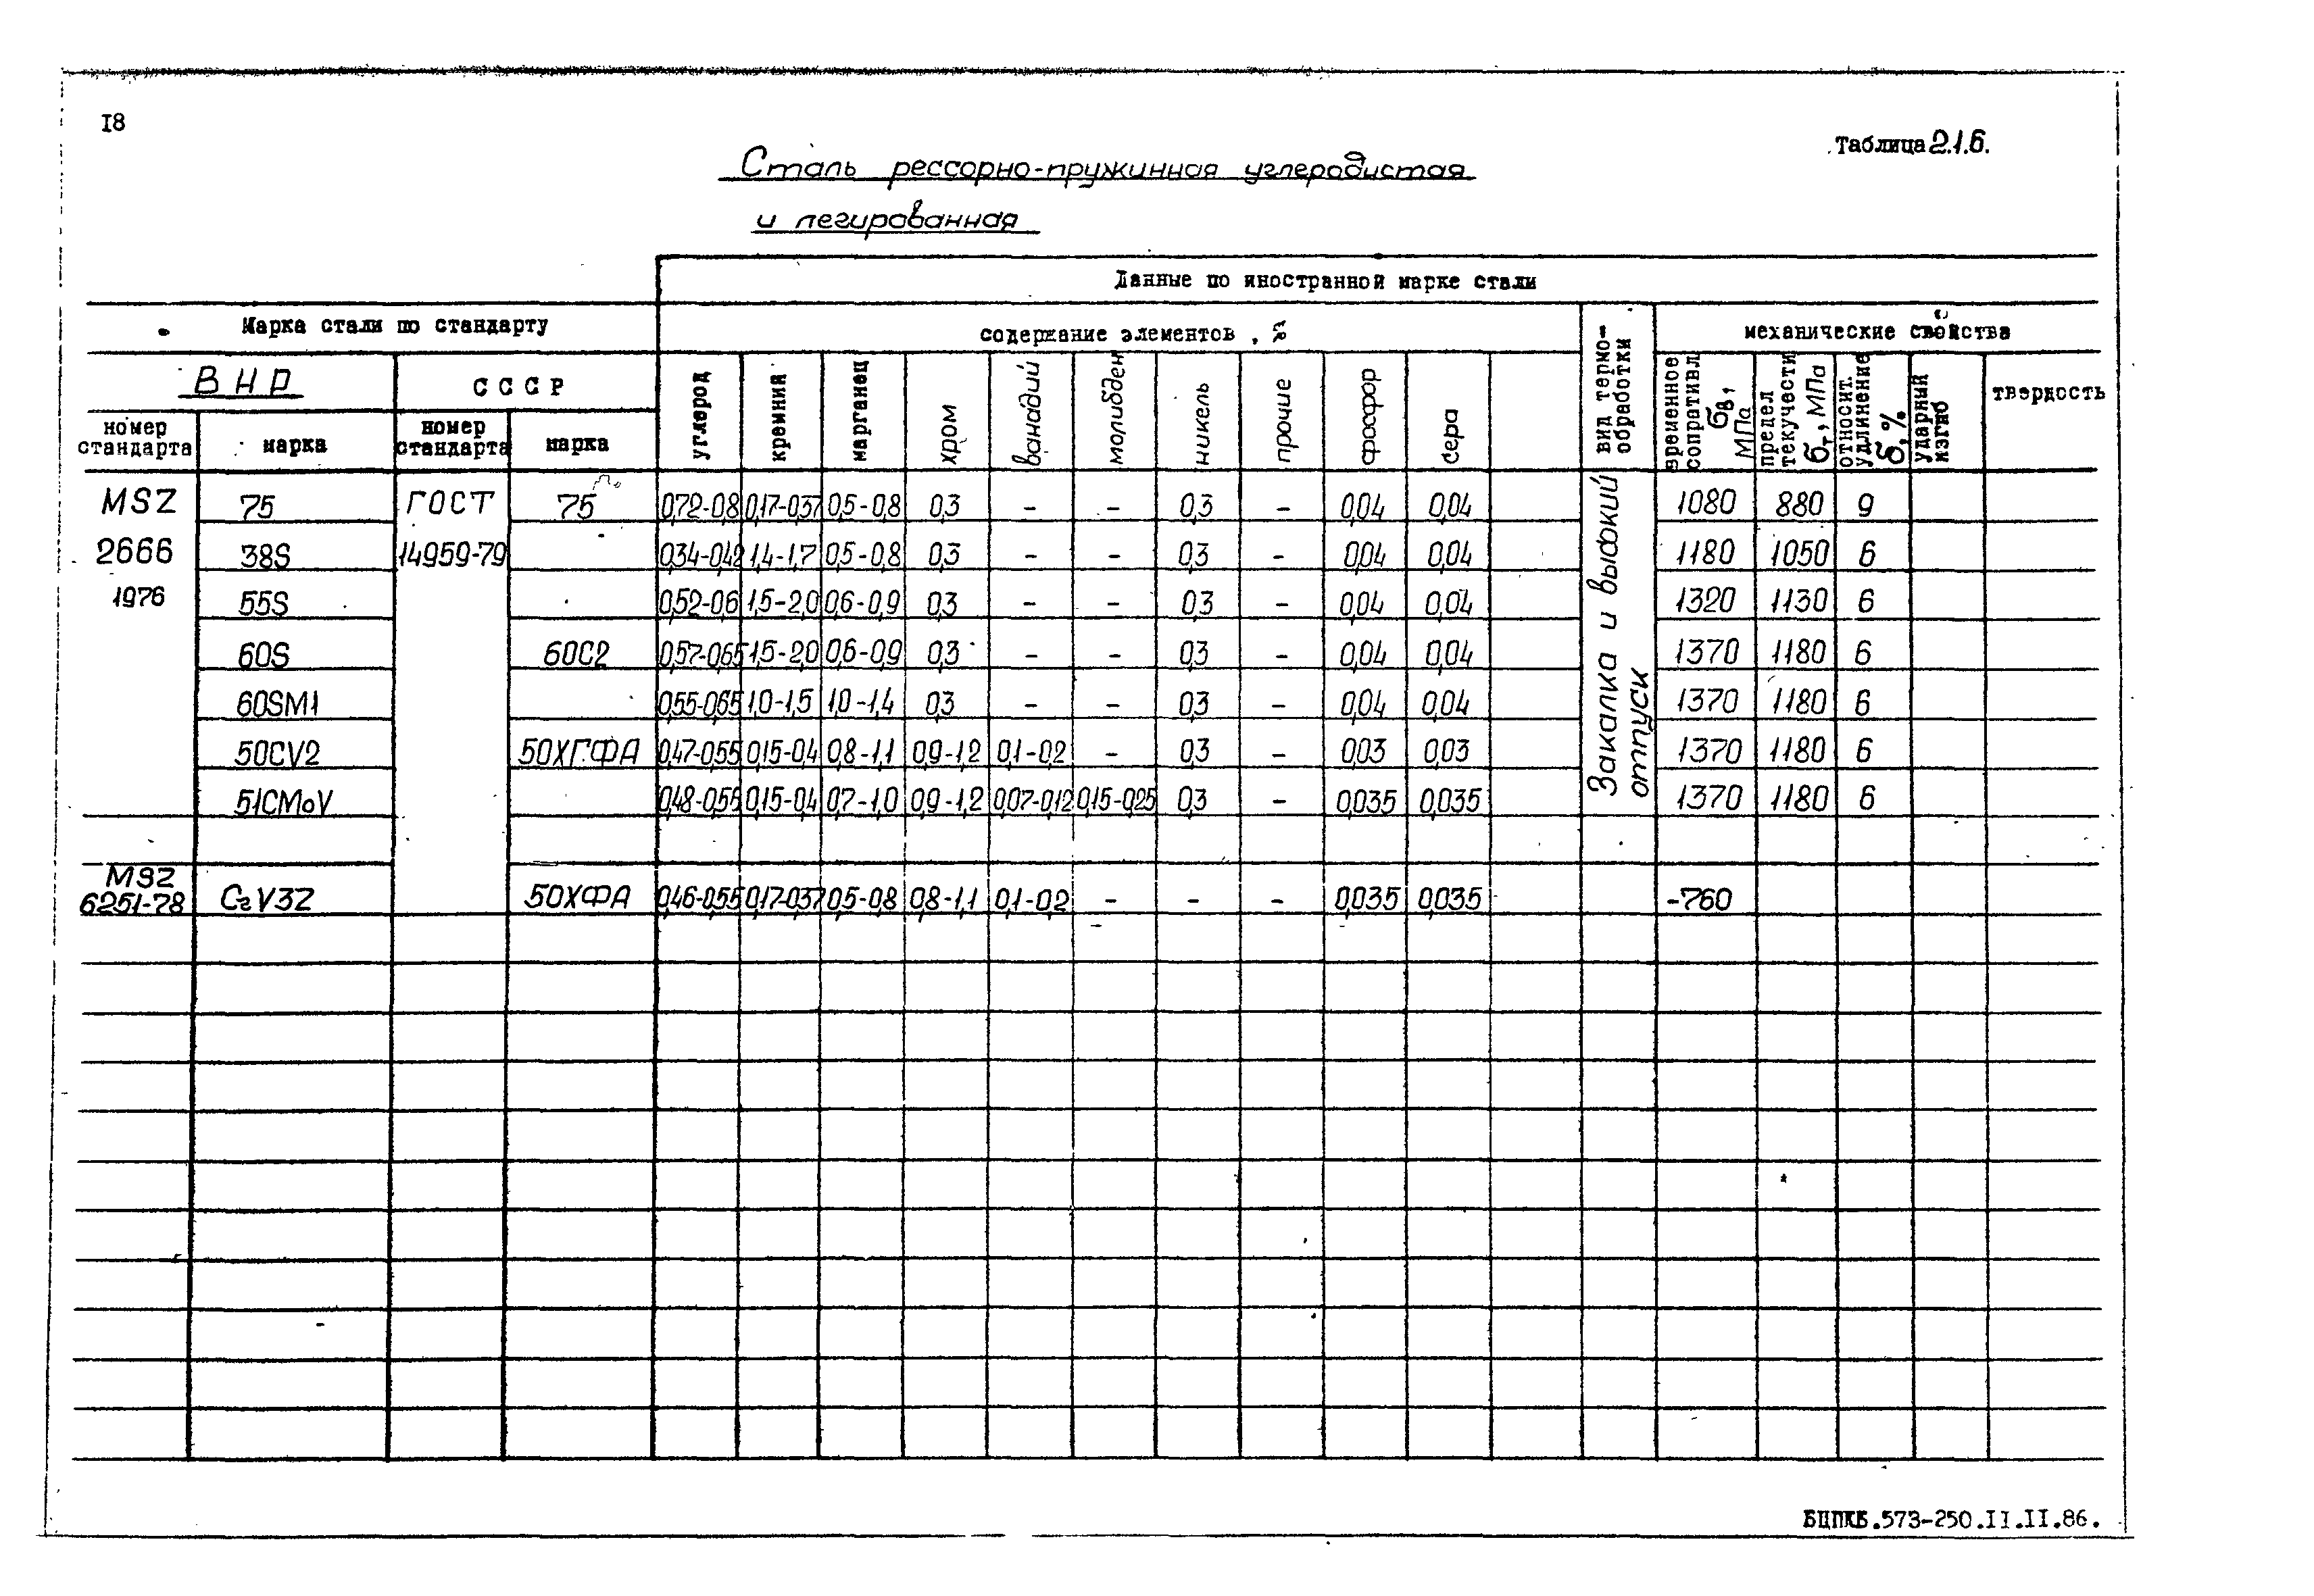 18
Таблица 2.1.6.
Сталь рессорно-пружинная углеродистая
и легированная
Данные по иностранной марке стали
Марка стали по стандарту
содержание элементов, %
вид термо-
обработки
механические свойства
ВНР
СССР
номер
стандарта
марка
номер
стандарта
марка
углерод
кремний
марганец
хром
ванадий
молибден
никель
прочие
фосфор
сера
временное
сопративл.
бв,
МПа
предел
текучести
бт, МПа
относит.
удлинение
б, %
ударный
изгиб
твердость
MSZ 75 ГОСТ 75 0,72-0,8 0,17-0,37 0,5-0,8 0,3 - - 0,3 - 0,04 0,04 1080 880 9
2666 38S 14959-79 0,34-0,42 1,4-1,7 0,5-0,8 0,3 - - 0,3 - 0,04 0,04 1180 1050 6
1976 55S 0,52-0,6 1,5-2,0 0,6-0,9 0,3 - - 0,3 - 0,04 0,04 1320 1130 6
60S 60С2 0,57-0,65 1,5-2,0 0,6-0,9 0,3 - - 0,3 - 0,04 0,04 1370 1180 6
60SM1 0,55-0,65 1,0-1,5 1,0-1,4 0,3 - - 0,3 - 0,04 0,04 1370 1180 6
50CV2 50ХГФА 0,47-0,55 0,15-0,4 0,8-1,1 0,9-1,2 0,1-0,2 - 0,3 - 0,03 0,03 1370 1180 6
51CMoV 0,48-0,55 0,15-0,4 0,7-1,0 0,9-1,2 0,07-0,12 0,15-0,25 0,3 - 0,035 0,035 1370 1180 6
Закалка и высокий
отпуск
MSZ
6251-78 CrV3Z 50ХФА 0,46-0,55 0,17-0,37 0,5-0,8 0,8-1,1 0,1-0,2 - - - 0,035 0,035 -760
БЦПКБ.573-250.II.II.86.